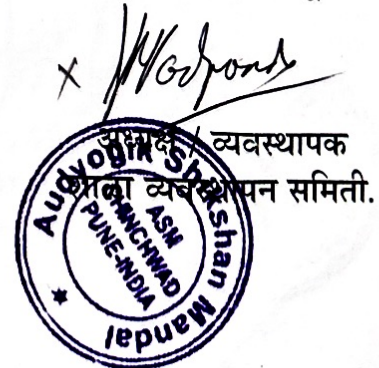 x
अध्यक्ष / व्यवस्थापक
शाळा व्यवस्थापन समिती.
Audyogik Shikshan Mandal
ASM
CHINCHWAD
PUNE-INDIA